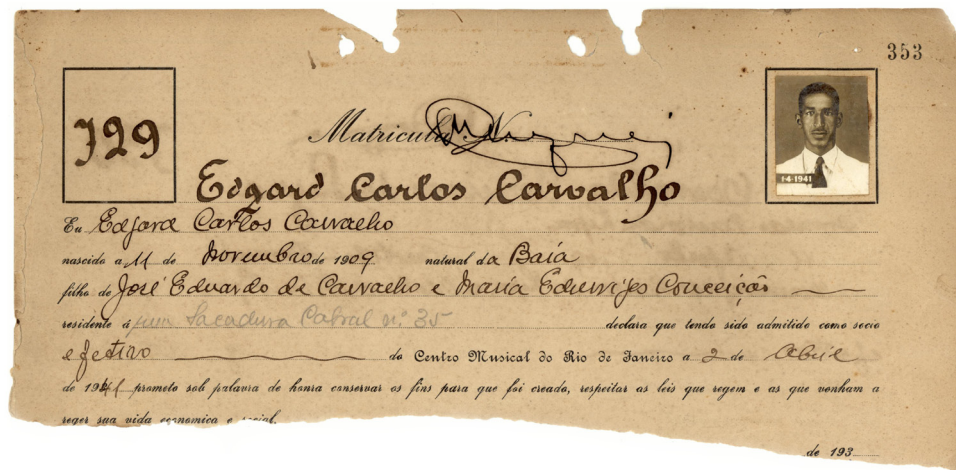 353
729
Matricula N.
1-4-1941
Edgard Carlos Carvalho
Eu Edgard Carlos Carvalho
nascido a 11 de Novembro de 1909 natural da Baía
filho de José Eduardo de Carvalho e Maria Eduviges Conceição
residente á rua Sacadura Cabral nº 35 declara que tendo sido admitido como socio
efetivo do Centro Musical do Rio de Janeiro a 2 de Abril
de 1941 prometo sob palavra de honra conservar os fins para que foi creado, respeitar as leis que regem e as que venham a
reger sua vida economica e social.
de 193